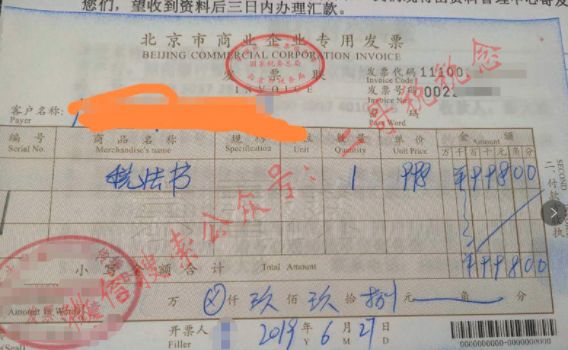 您们，望收到资料后三日内办理汇款。
北京市商业企业专用发票
BEIJING COMMERCIAL CORPORATION INVOICE
发票联
INVOICE
国家税务总局
发票代码 11100
Invoice Code
发票号码 002
Invoice No
密码
Pass Word
客户名称:
Payer
编号 商品名称 规格 单位 数量 单价 金额
Serial No. Merchandise's name Specification Unit Quantity Unit Price 万 千 百 十 元 角 分
税法书 1 998 ¥99800
小写金额合计 Total Amount ¥99800
Amount In Words 万 ⊗ 仟 玖 佰 玖 拾 捌 元 角 分
开票人 2019 年 6 月 27 日
Filler Y M D
二 付款
SECOND
微信搜索公众号:二哥税税念
0000000000-00000000